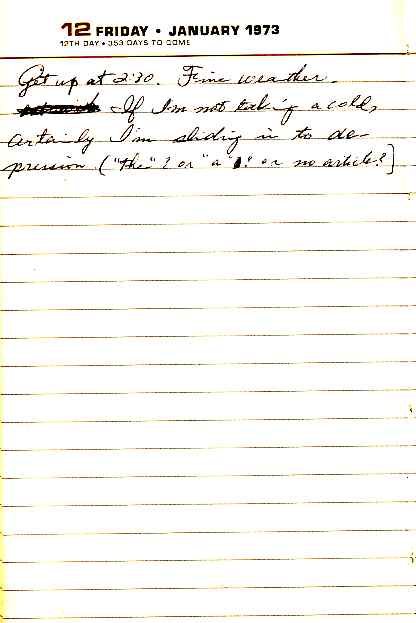 12 FRIDAY • JANUARY 1973
12TH DAY • 353 DAYS TO COME
Get up at 2:30. Fine weather.
If I'm not taking a cold,
certainly I'm sliding in to de-
pression ("the"? or "a"? or no article?)